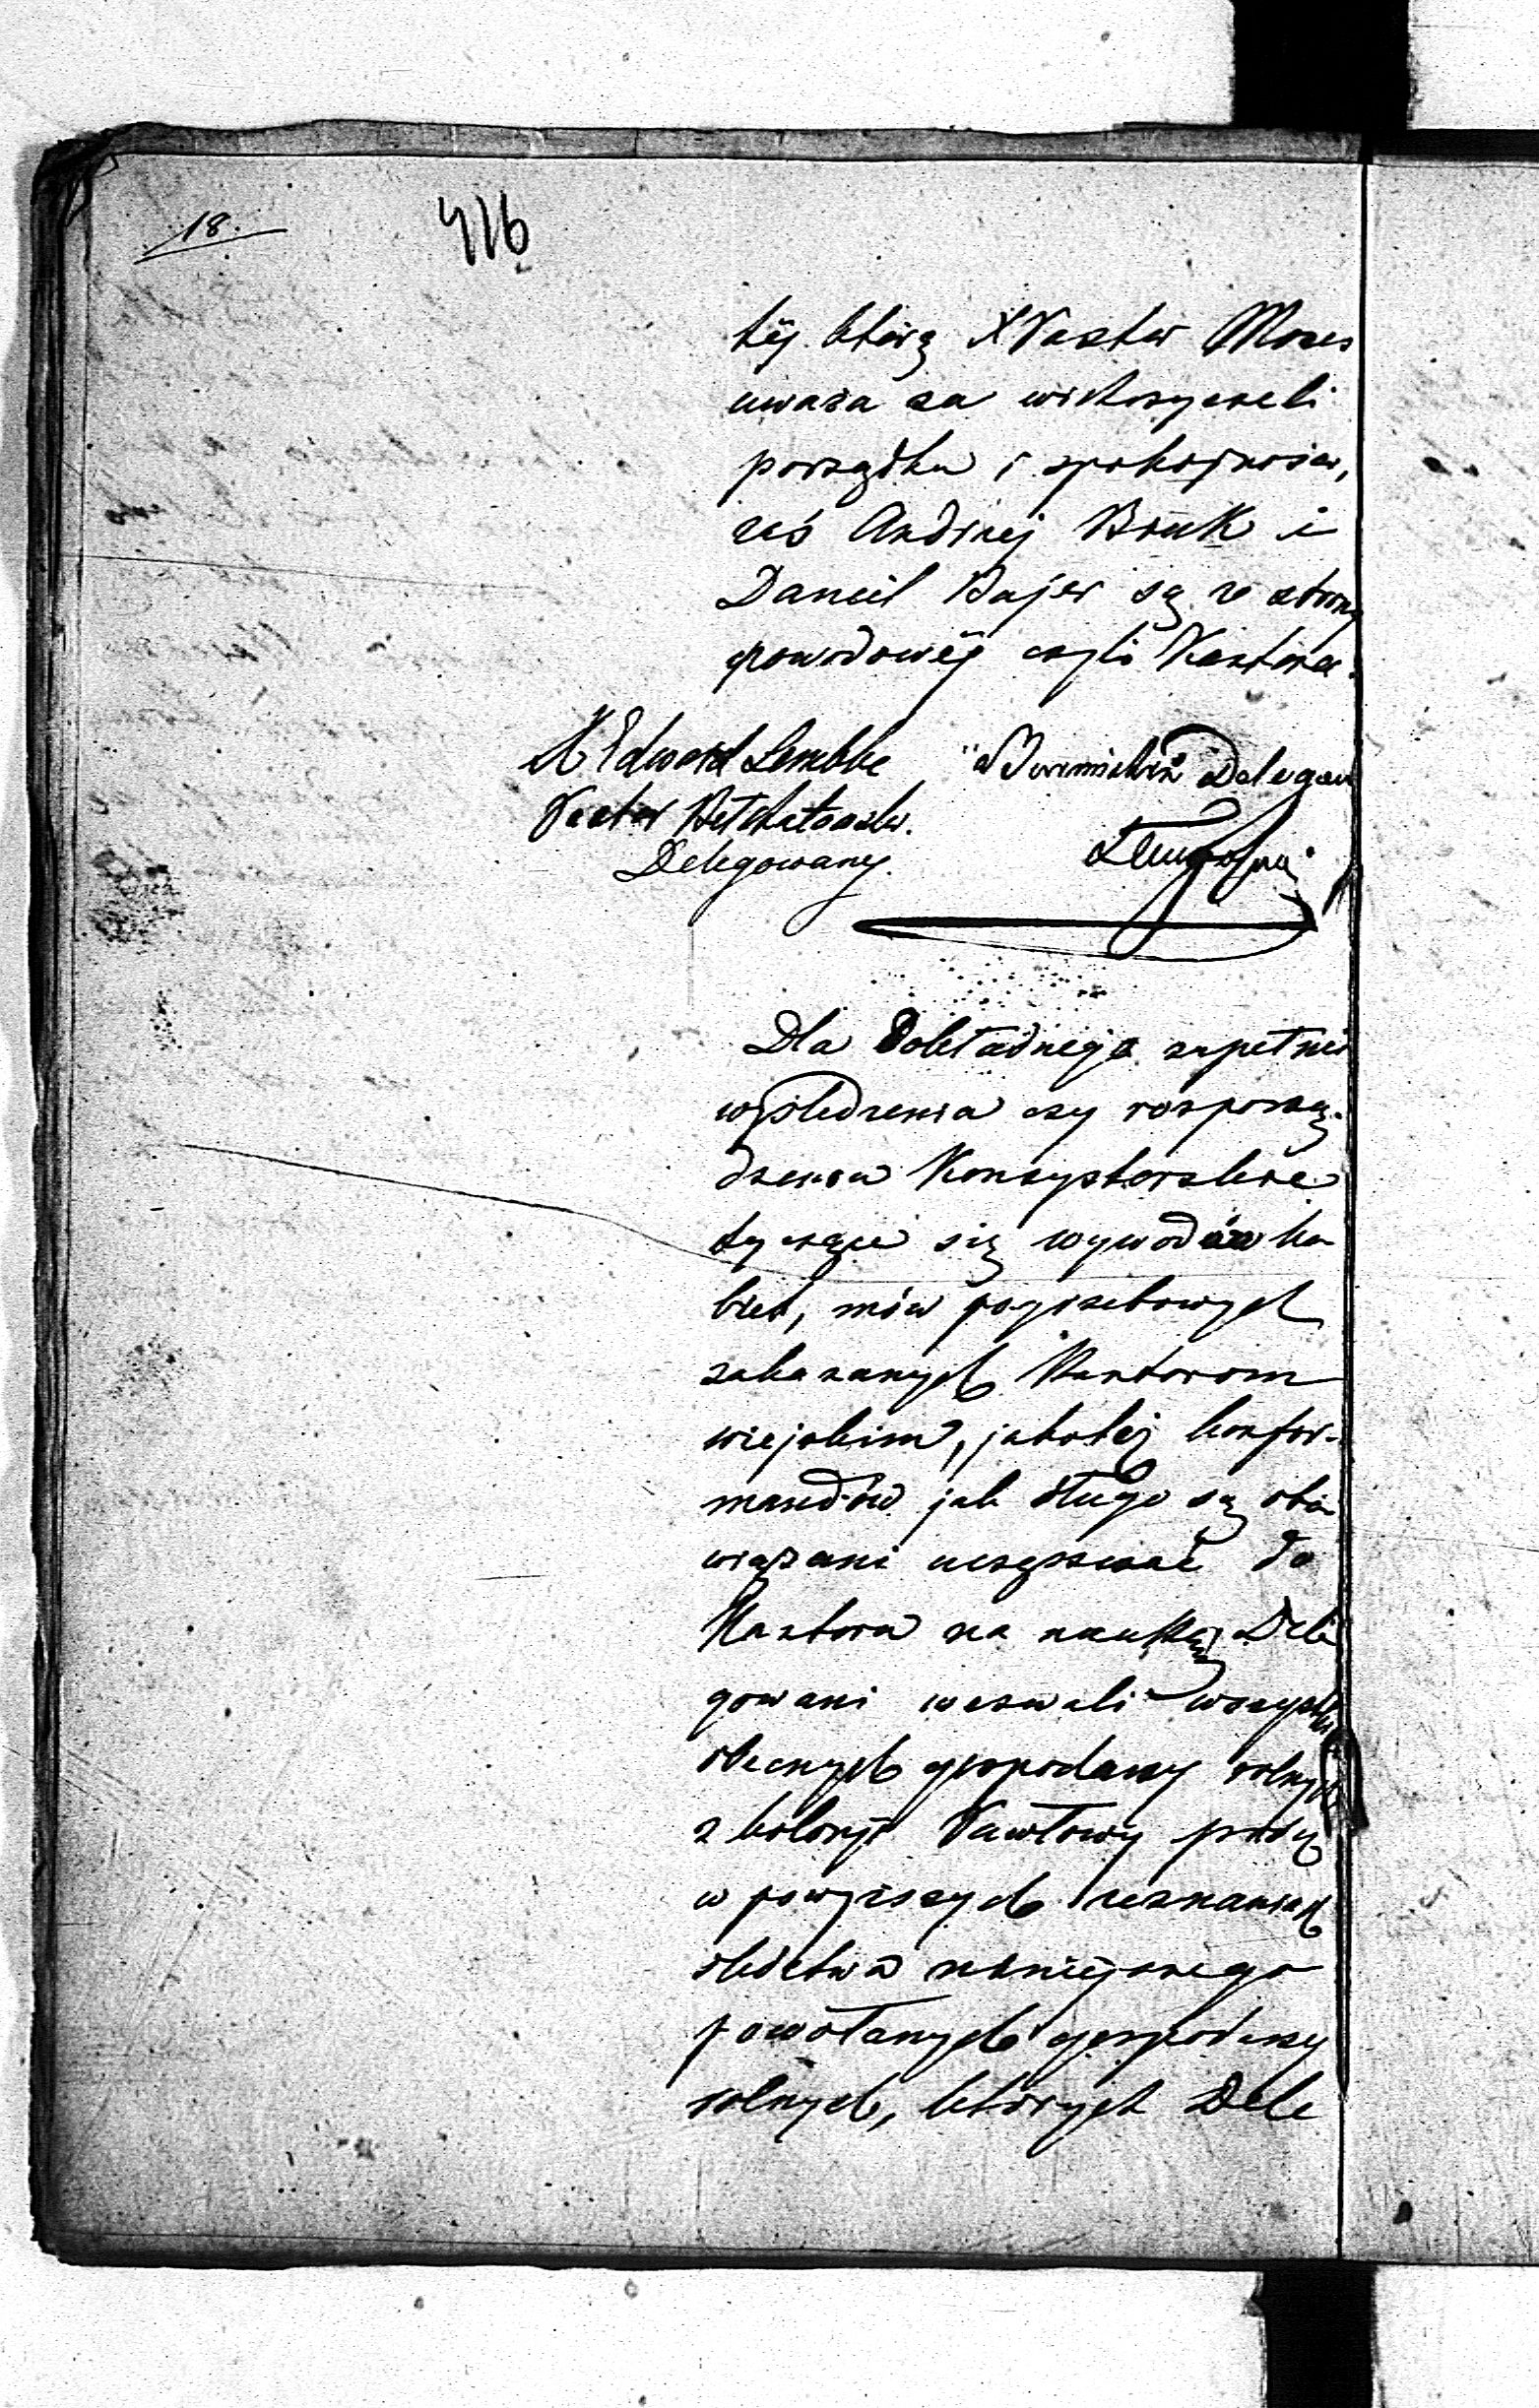 18.
416
téj którą X Pastor Moses
uważa za wichrzycieli
porządku i spokojności,
zaś Andrzej Bruk i
Daniel Bajer są ze strony
powodowéj czyli Kantora.
X Edward Lembke
Pastor Bełchatowski.
Delegowany.
Delegow
Dla dokładnego zupełnie
wyśledzenia czy rozporzą-
dzenia Konsystorskie
tyczące się wywodów ko
biet, mów pogrzebowych
zakazanych Kantorom
wiejskim, jakotéż konfir-
mandów jak długo są obo
wiązani uczęszczać do
Kantora na naukę, Dele
gowani wezwali wszystkich
obecnych gospodarzy rolnych
z kolonji Pawłowy prócz
w powyższych zeznaniach
śledztwa niniejszego
powołanych gospodarzy
rolnych, których Dele